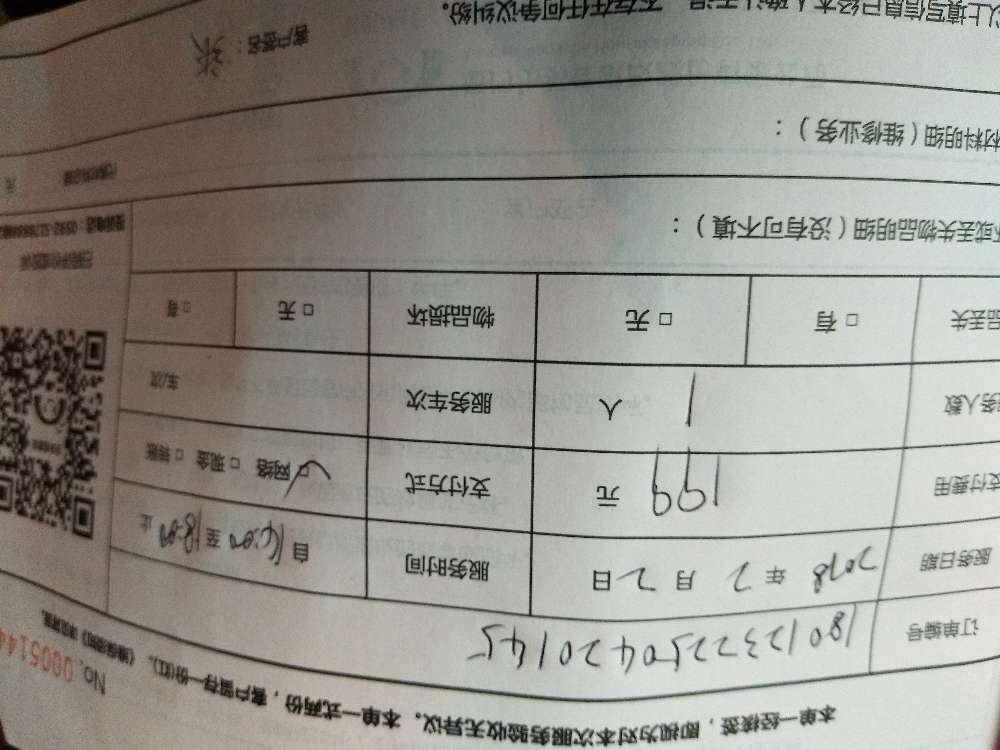 本单一经核签，即视为对本次服务验收无异议。本单一式两份，客户留存一份(红)。
No. 0005144
订单编号 1801232250420145
服务日期 2018 年 2 月 2 日 服务时间 自 16:00 至 18:00 止
支付费用 199 元 支付方式 □ 网络 □ 现金 □
服务人数 1 人 服务车次 车/次
品丢失 □ 有 □ 无 物品损坏 □ 无 □ 有
坏或丢失物品明细（没有可不填）：
材料明细（维修业务）：
以上填写信息已经本人确认无误，不存在任何争议纠纷。
客户签名：张